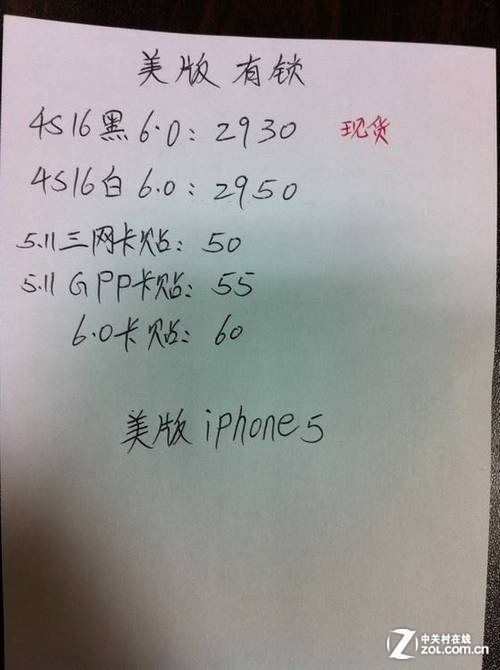 美版 有锁
4S16黑 6.0: 2930 现货
4S16白 6.0: 2950
5.11三网卡贴: 50
5.11 GPP卡贴: 55
6.0卡贴: 60
美版 iphone5
Z 中关村在线
ZOL.COM.CN